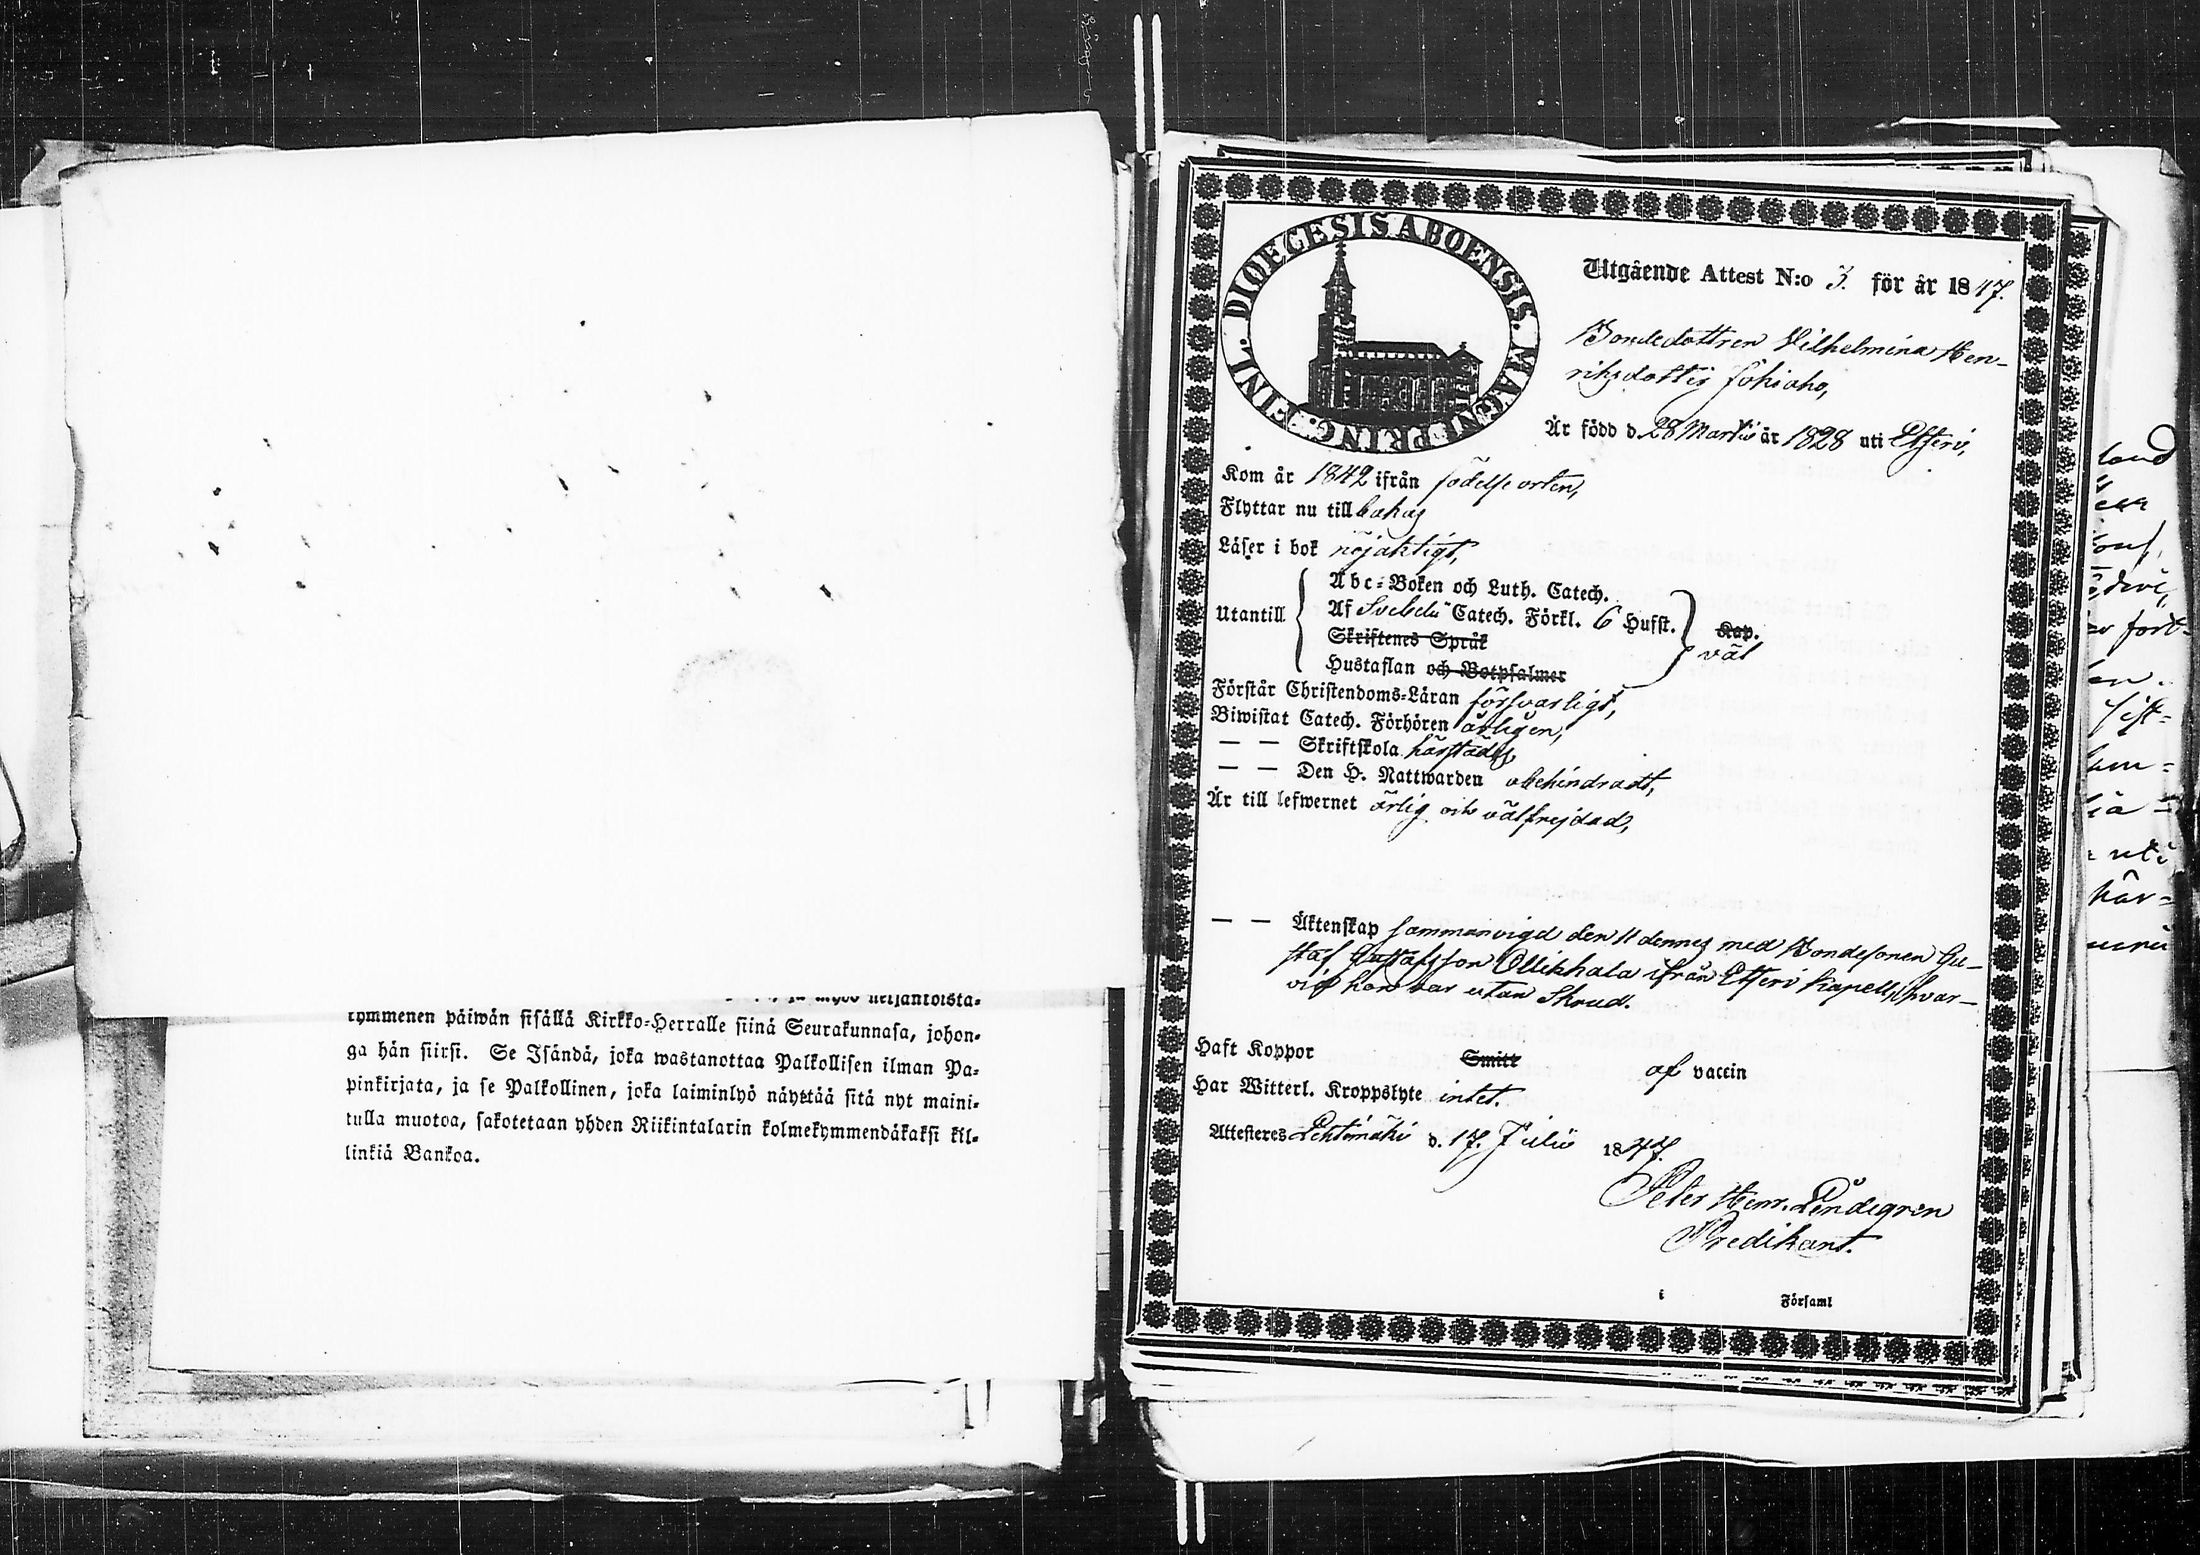 neljäntoista-
kymmenen päiwän sisällä Kirkko-Herralle siinä Seurakunnasa, johon-
ga hän siirsi. Se Isändä, joka wastanottaa Palkollisen ilman Pa-
pinkirjata, ja se Palkollinen, joka laiminlyö näyttää sitä nyt maini-
tulla muotoa, sakotetaan yhden Riikintalarin kolmekymmendäkaksi kil-
linkiä Bankoa.
DIOECESIS ABOENSIS. MAGNI PRING. FINL.
Utgående Attest N:o 3. för år 1847.
Bondedottren Vilhelmina Hen-
riksdotter
Är född d. 28 Martii år 1828 uti Etseri,
Kom år 1842 ifrån födelse orten,
Flyttar nu till
Läser i bok nöjaktigt,
Utantill
Abc-Boken och Luth. Catech.
Af Svebelii Catech. Förkl. 6 Hufst.
Skriftenes Språk
Hustaflan och Botpsalmer
Kap.
väl
Förstår Christendoms-Läran försvarligt,
Biwistat Catech. Förhören årligen,
— — Skriftskola härstädes
— — Den H. Nattwarden obehindradt,
Är till lefwernet ärlig och välfrejdad,
— — Äktenskap sammanvigd den 11 dennes med Bondesonen Gu-
staf Gustafsson Ollikkala ifrån Etseri Kapell, hvar-
vid hon var utan Skrud.
Haft Koppor Smitt af vaccin
Har Witterl. Kroppslyte intet.
Attesteres Lehtimäki d. 17. Julii 1847.
Peter Henr. Lindegren
Predikant.
i Församl
land
uti
här-